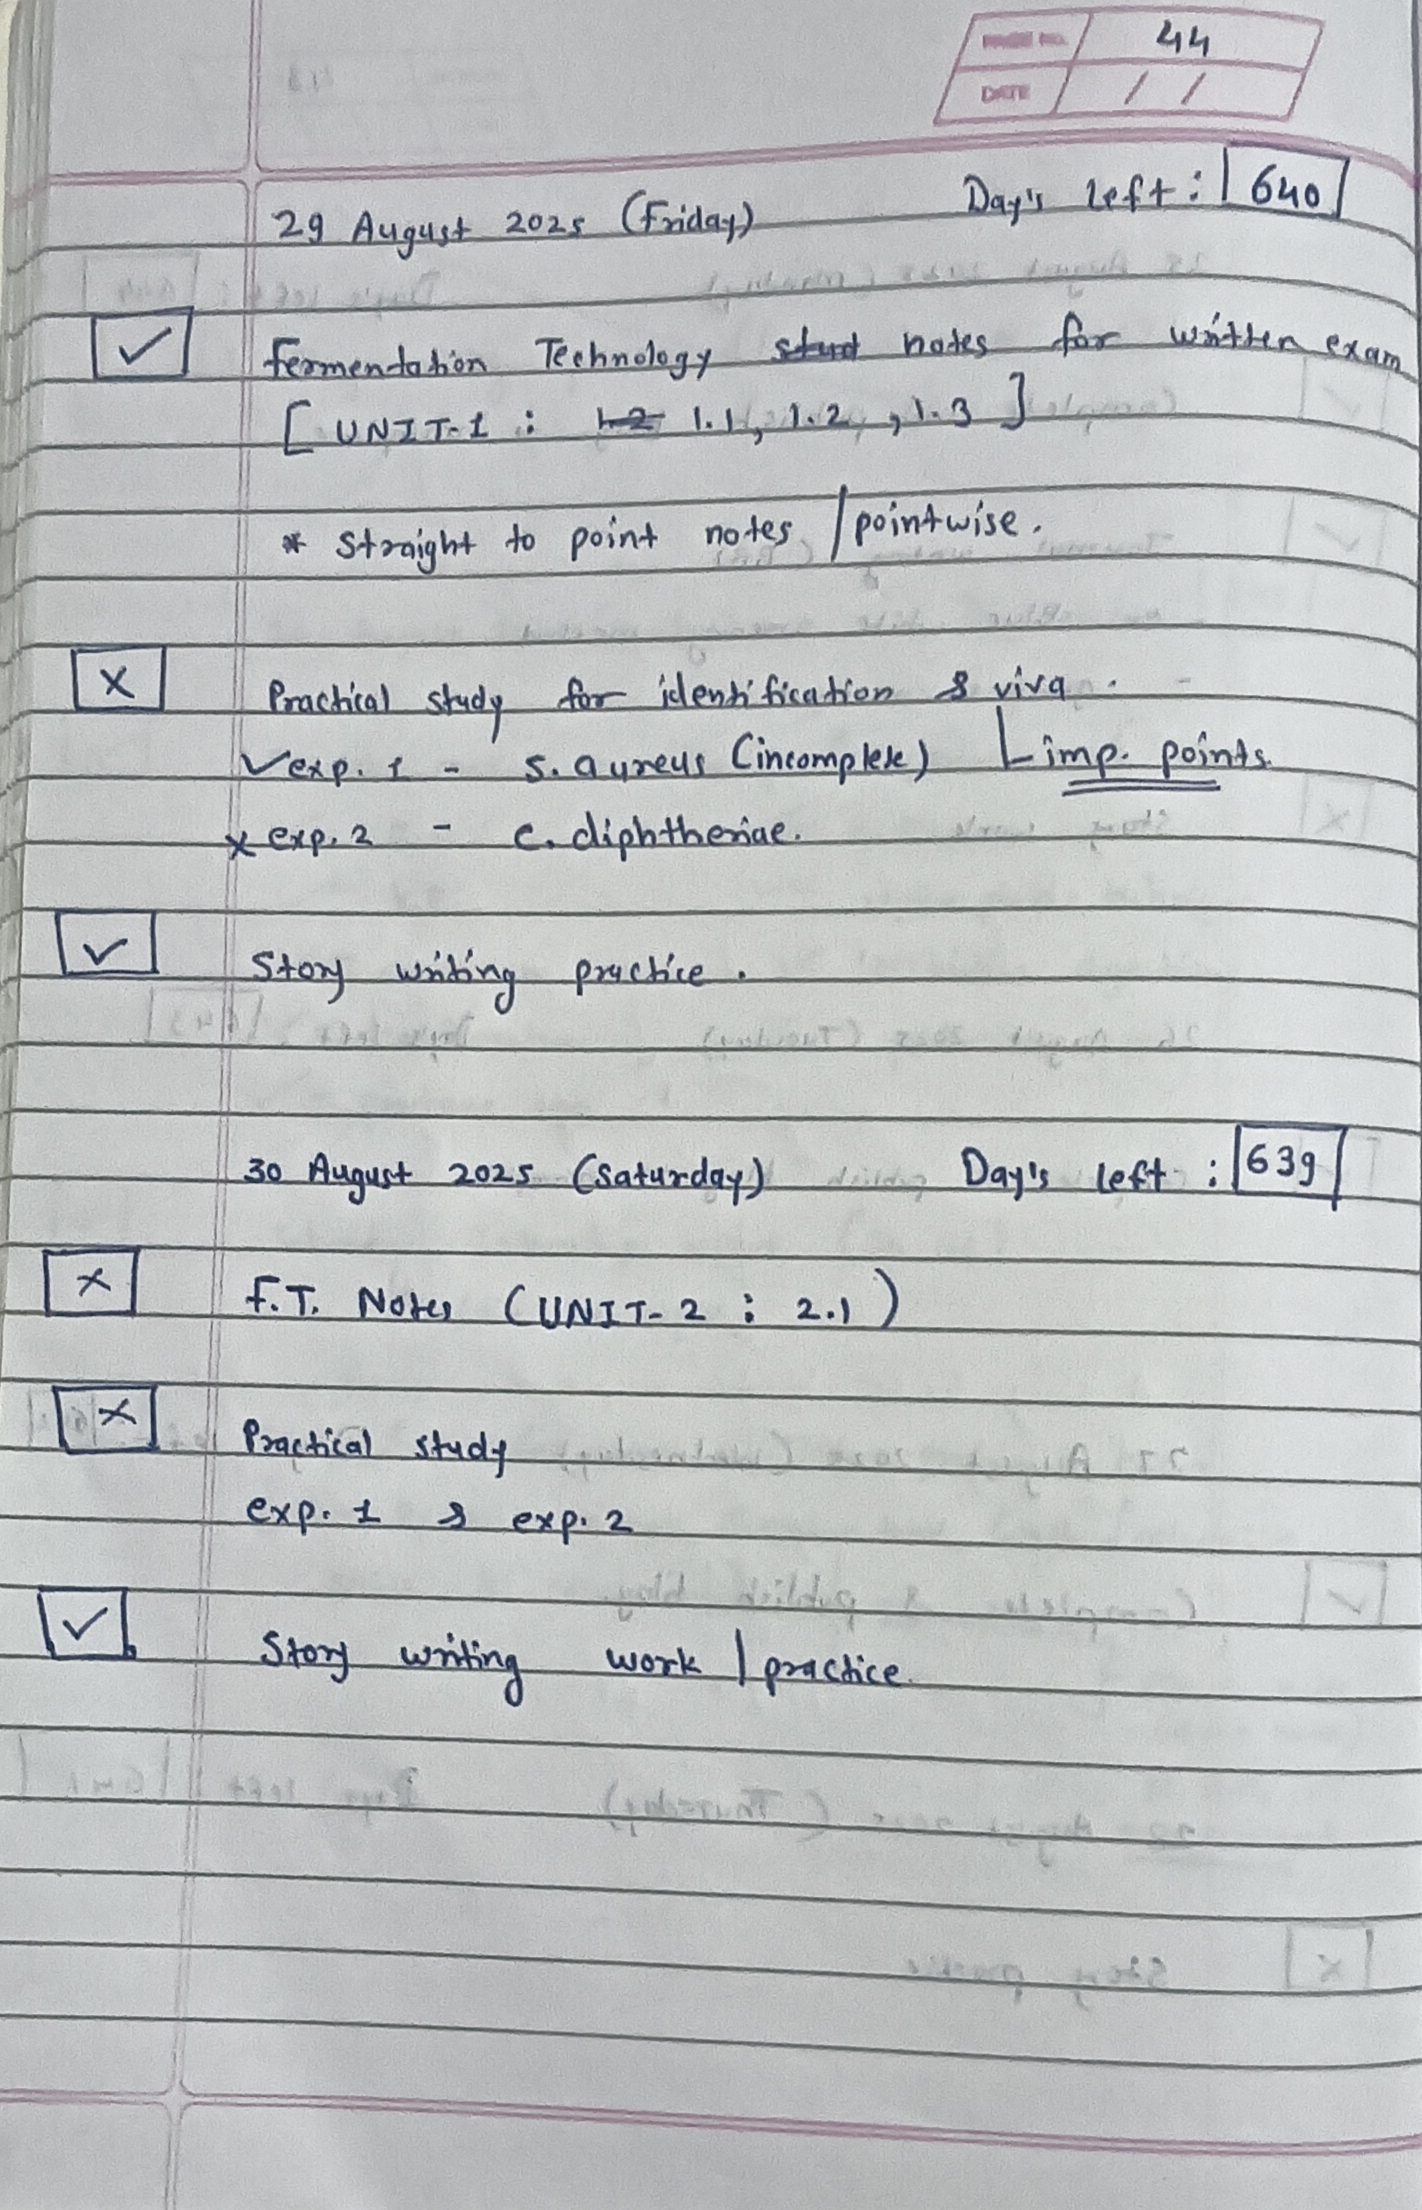 PAGE NO. 44
DATE / /
29 August 2025 (Friday) Day's left : 640
✓ Fermentation Technology stud notes for written exam
[ UNIT-1 : 1.2 1.1, 1.2, 1.3 ]
* Straight to point notes / pointwise.
x Practical study for identification & viva.
✓ exp. 1 - S. aureus (incomplete) imp. points.
x exp. 2 - C. diphtheriae.
✓ Story writing practice.
30 August 2025 (Saturday) Day's left : 639
x F.T. Notes (UNIT-2 : 2.1)
x Practical study
exp. 1 & exp. 2
✓ Story writing work / practice.